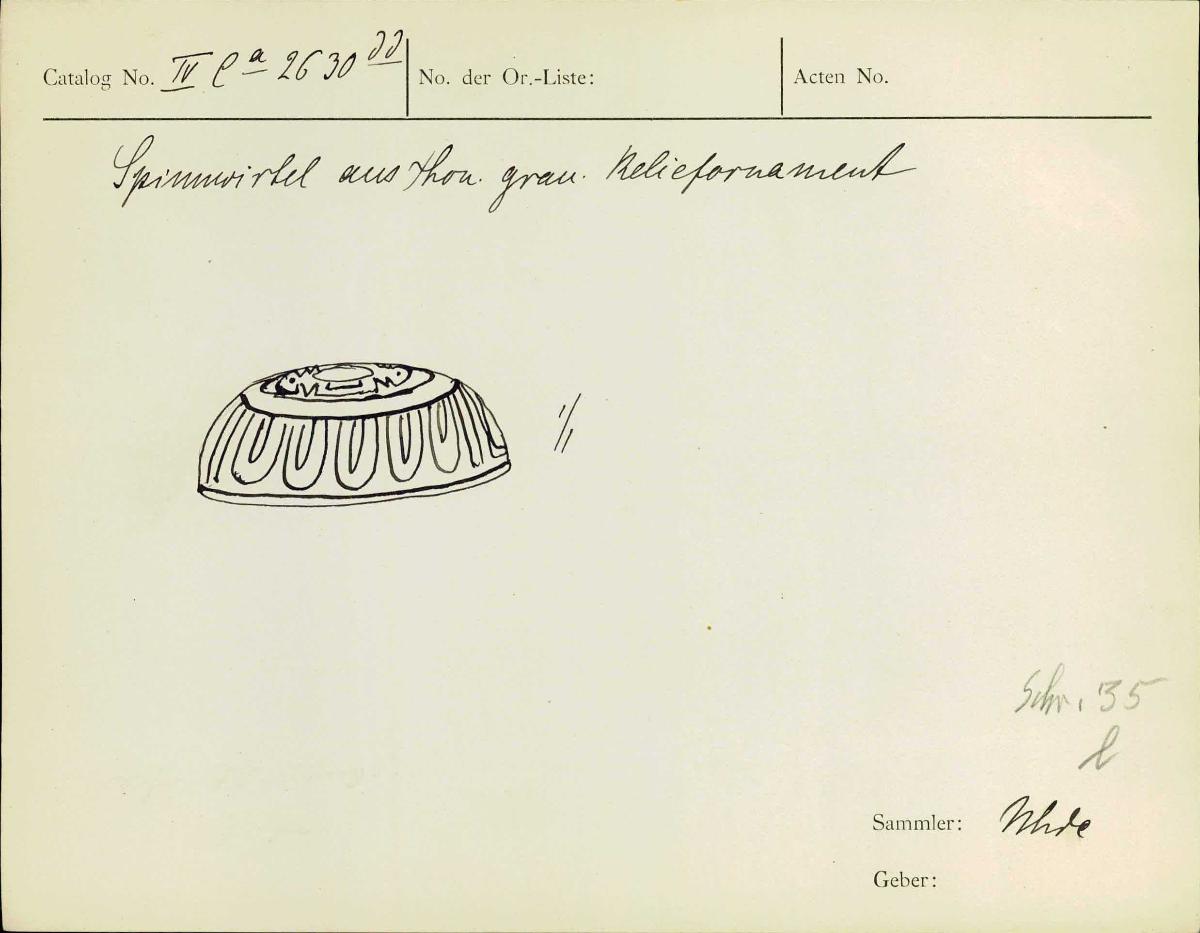 Catalog No. IV Ca 2630 dd No. der Or.-Liste: Acten No.
Spinnwirtel aus Thon. grau. Reliefornament
1/1
Schr. 35
l
Sammler: Uhde
Geber: